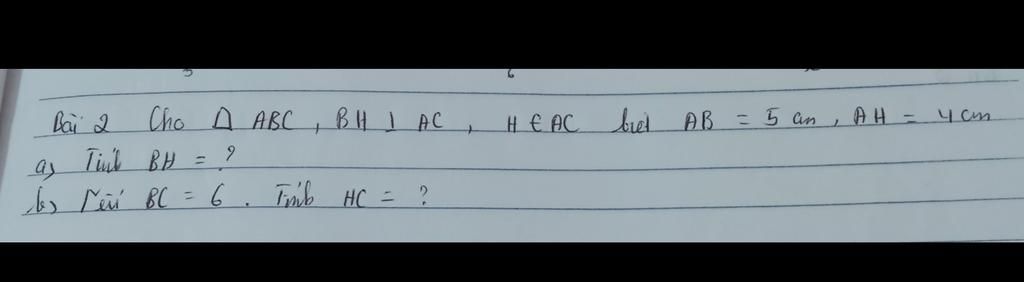 Bài 2 Cho Δ ABC, BH ⊥ AC, H ∈ AC biết AB = 5 cm, AH = 4 cm
a) Tính BH = ?
b) Nếu BC = 6. Tính HC = ?